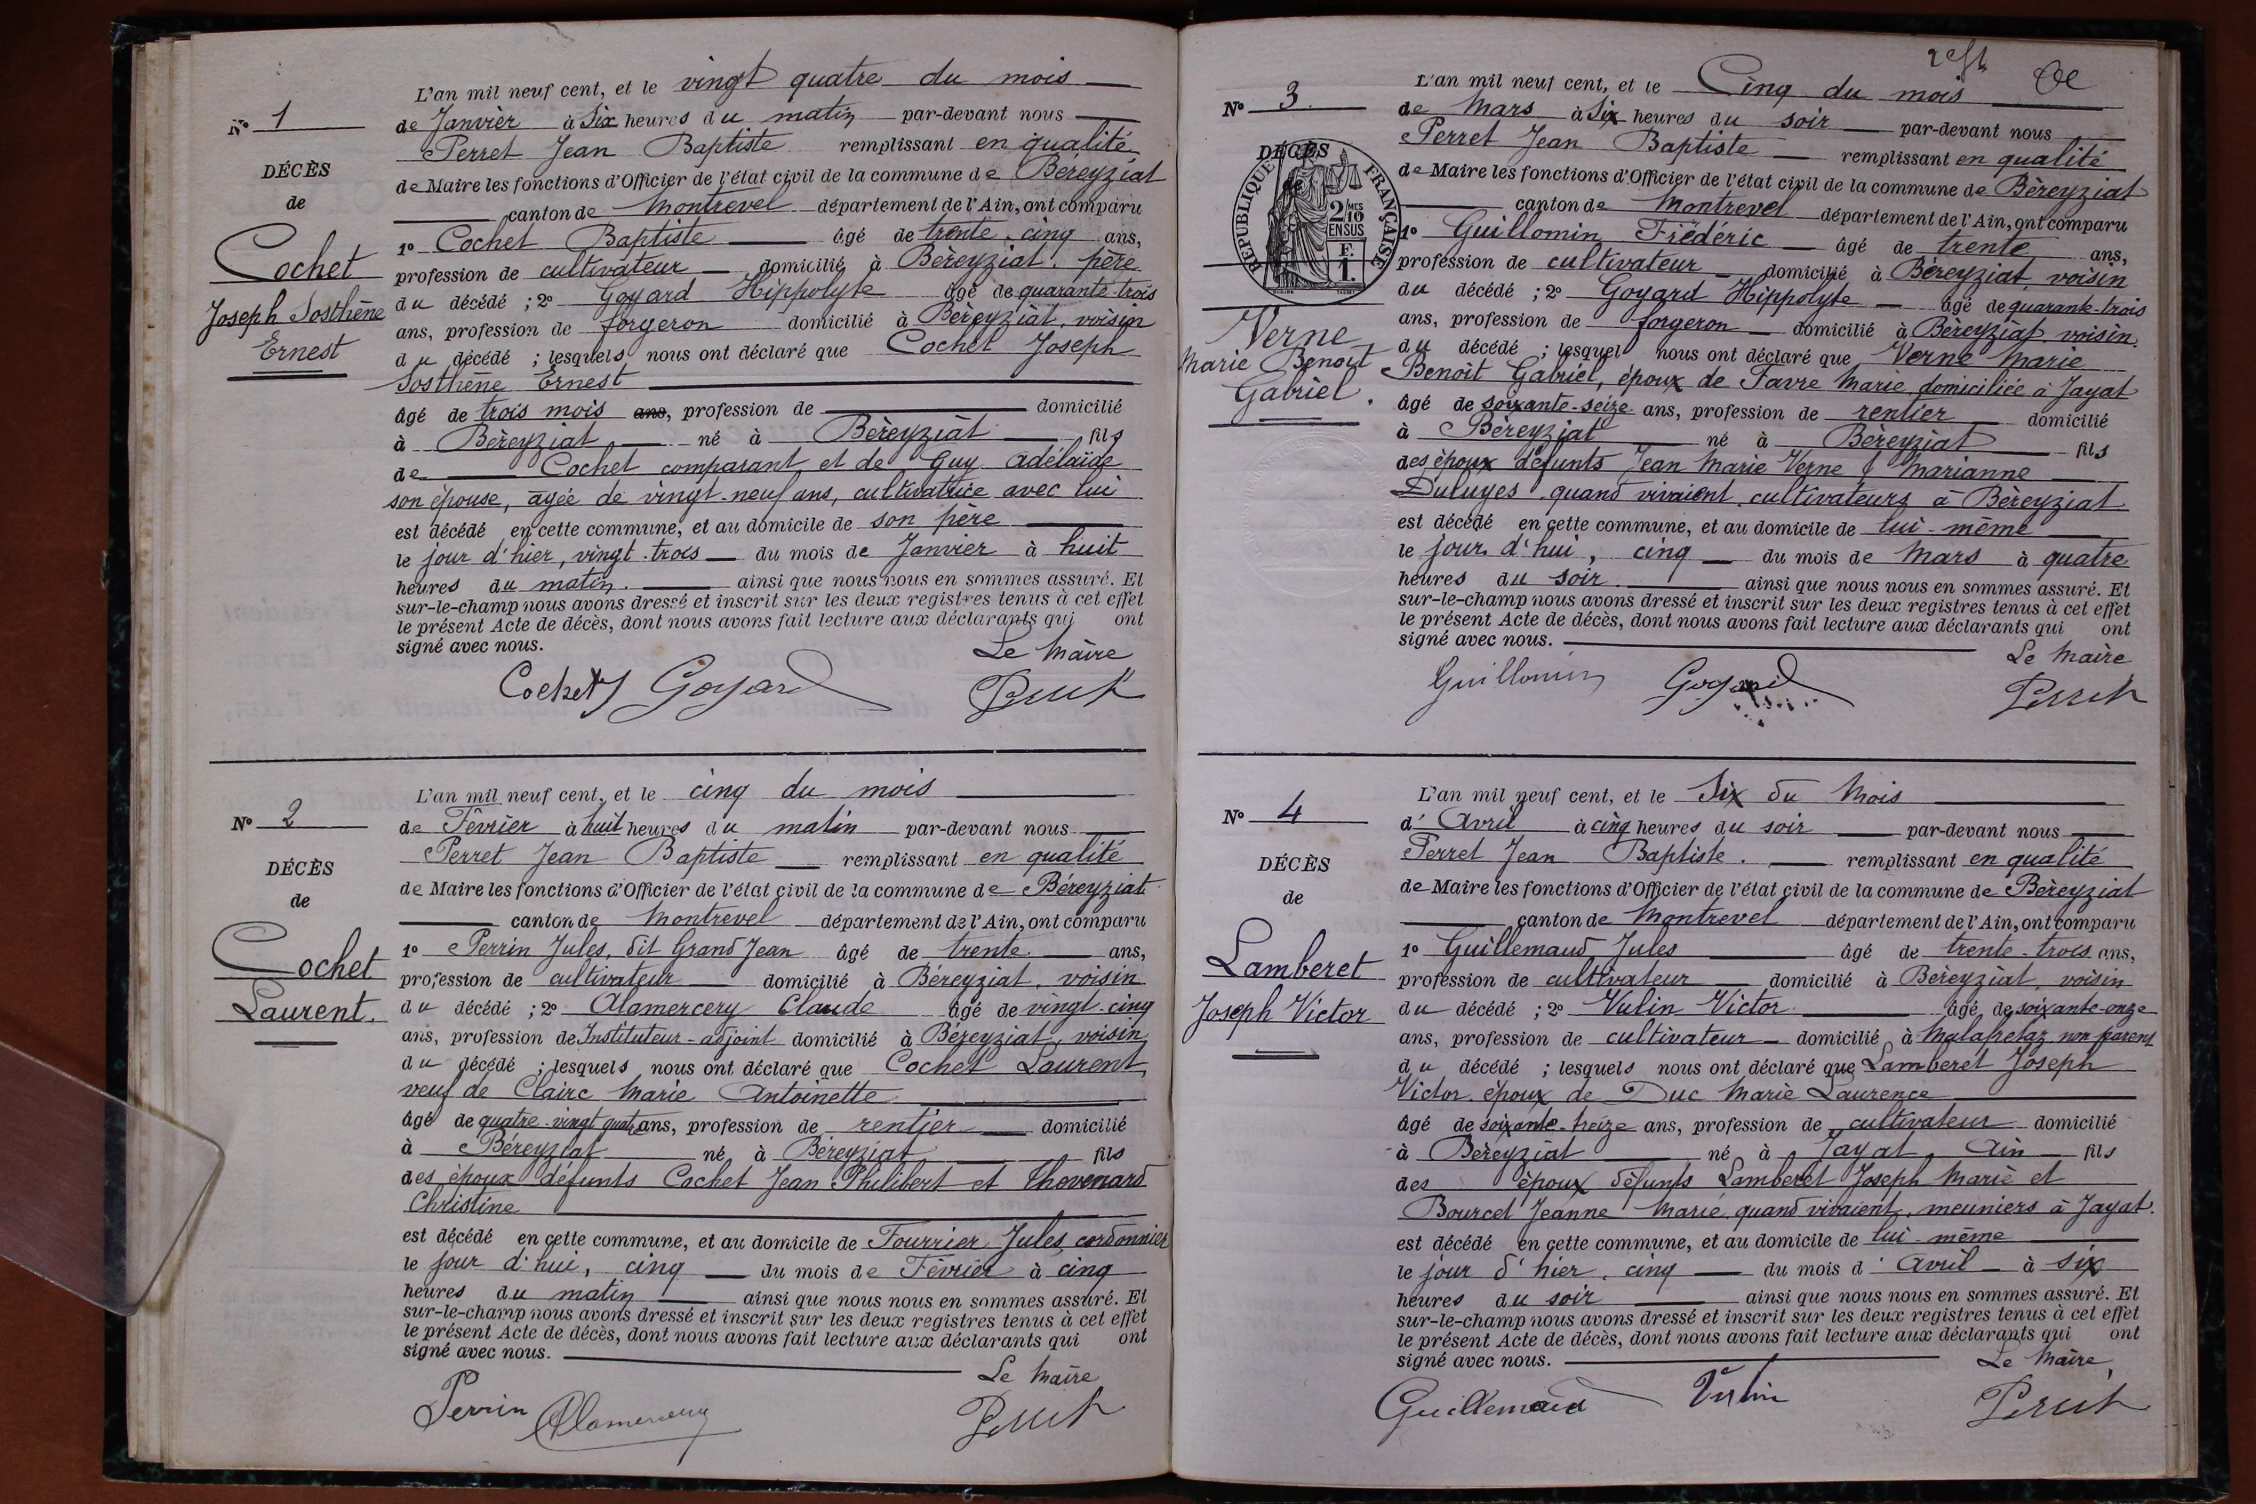 N° 1
DÉCÈS
de
Cochet
Joseph Sosthène
Ernest
L'an mil neuf cent, et le vingt quatre du mois
de Janvièr à Six heures du matin par-devant nous
Perret Jean Baptiste remplissant en qualité
de Maire les fonctions d'Officier de l'état civil de la commune de Béreyziat
canton de Montrevel département de l'Ain, ont comparu
1° Cochet Baptiste âgé de trente-cinq ans,
profession de cultivateur domicilié à Béreyziat, père
du décédé ; 2° Goyard Hippolyte âgé de quarante-trois
ans, profession de forgeron domicilié à Bèreyziat, voisin
du décédé ; lesquels nous ont déclaré que Cochet Joseph
Sosthène Ernest
âgé de trois mois ans, profession de domicilié
à Bèreyziat né à Bèreyziat fils
de Cochet comparant et de Guy Adélaïde
son épouse, âgée de vingt-neuf ans, cultivatrice avec lui
est décédé en cette commune, et au domicile de son père
le jour d'hier, vingt-trois du mois de Janvièr à huit
heures du matin. ainsi que nous nous en sommes assuré. Et
sur-le-champ nous avons dressé et inscrit sur les deux registres tenus à cet effet
le présent Acte de décès, dont nous avons fait lecture aux déclarants qui ont
signé avec nous.
Le Maire
Cochet Goyard Perret
N° 2
DÉCÈS
de
Cochet
Laurent.
L'an mil neuf cent, et le cinq du mois
de Février à huit heures du matin par-devant nous
Perret Jean Baptiste remplissant en qualité
de Maire les fonctions d'Officier de l'état civil de la commune de Béreyziat
canton de Montrevel département de l'Ain, ont comparu
1° Perrin Jules, dit Grand Jean âgé de trente ans,
profession de cultivateur domicilié à Béreyziat, voisin
du décédé ; 2° Alamercery Claude âgé de vingt-cinq
ans, profession de Instituteur-adjoint domicilié à Béreyziat, voisin
du décédé ; lesquels nous ont déclaré que Cochet Laurent,
veuf de Clairc Marie Antoinette
âgé de quatre-vingt quatre ans, profession de rentier domicilié
à Béreyziat né à Béreyziat fils
des époux défunts Cochet Jean Philibert et Thovenard
Christine
est décédé en cette commune, et au domicile de Fourrier Jules, cordonnier
le jour d'hui, cinq du mois de Février à cinq
heures du matin ainsi que nous nous en sommes assuré. Et
sur-le-champ nous avons dressé et inscrit sur les deux registres tenus à cet effet
le présent Acte de décès, dont nous avons fait lecture aux déclarants qui ont
signé avec nous.
Le Maire
Perrin Alamercery Perret
N° 3
DÉCÈS
de
RÉPUBLIQUE FRANÇAISE
2/10 MES
EN SUS
F.
1.
Verne
Marie Benoit
Gabriel.
L'an mil neuf cent, et le Cinq du mois
de Mars à Six heures du soir par-devant nous
Perret Jean Baptiste remplissant en qualité
de Maire les fonctions d'Officier de l'état civil de la commune de Bèreyziat
canton de Montrevel département de l'Ain, ont comparu
1° Guillomin Frédéric âgé de trente ans,
profession de cultivateur domicilié à Béreyziat, voisin
du décédé ; 2° Goyard Hippolyte âgé de quarante-trois
ans, profession de forgeron domicilié à Bèreyziat, voisin
du décédé ; lesquel nous ont déclaré que Verne Marie
Benoit Gabriel, époux de Favre Marie domiciliée à Jayat
âgé de soixante-seize ans, profession de rentier domicilié
à Béreyziat né à Bèreyziat fils
des époux défunts Jean Marie Verne & Marianne
Duluyes quand vivaient cultivateurs à Béreyziat
est décédé en cette commune, et au domicile de lui-même
le jour d'hui, cinq du mois de Mars à quatre
heures du soir. ainsi que nous nous en sommes assuré. Et
sur-le-champ nous avons dressé et inscrit sur les deux registres tenus à cet effet
le présent Acte de décès, dont nous avons fait lecture aux déclarants qui ont
signé avec nous.
Le Maire
Guillomin Goyard Perret
N° 4
DÉCÈS
de
Lamberet
Joseph Victor
L'an mil neuf cent, et le Six du Mois
d' Avril à cinq heures du soir par-devant nous
Perret Jean Baptiste. remplissant en qualité
de Maire les fonctions d'Officier de l'état civil de la commune de Bèreyziat
canton de Montrevel département de l'Ain, ont comparu
1° Guillemaud Jules âgé de trente-trois ans,
profession de cultivateur domicilié à Bèreyziat, voisin
du décédé ; 2° Vulin Victor âgé de soixante-onze
ans, profession de cultivateur domicilié à Malafretaz non parent
du décédé ; lesquels nous ont déclaré que Lamberet Joseph
Victor, époux de Duc Marie Laurence
âgé de soixante-treize ans, profession de cultivateur domicilié
à Bèreyziat né à Jayat, Ain fils
des époux défunts Lamberet Joseph Marie et
Bourcet Jeanne Marie, quand vivaient, meuniers à Jayat.
est décédé en cette commune, et au domicile de lui-même
le jour d'hier, cinq du mois d'Avril à six
heures du soir ainsi que nous nous en sommes assuré. Et
sur-le-champ nous avons dressé et inscrit sur les deux registres tenus à cet effet
le présent Acte de décès, dont nous avons fait lecture aux déclarants qui ont
signé avec nous.
Le Maire
Guillemaud Vulin Perret